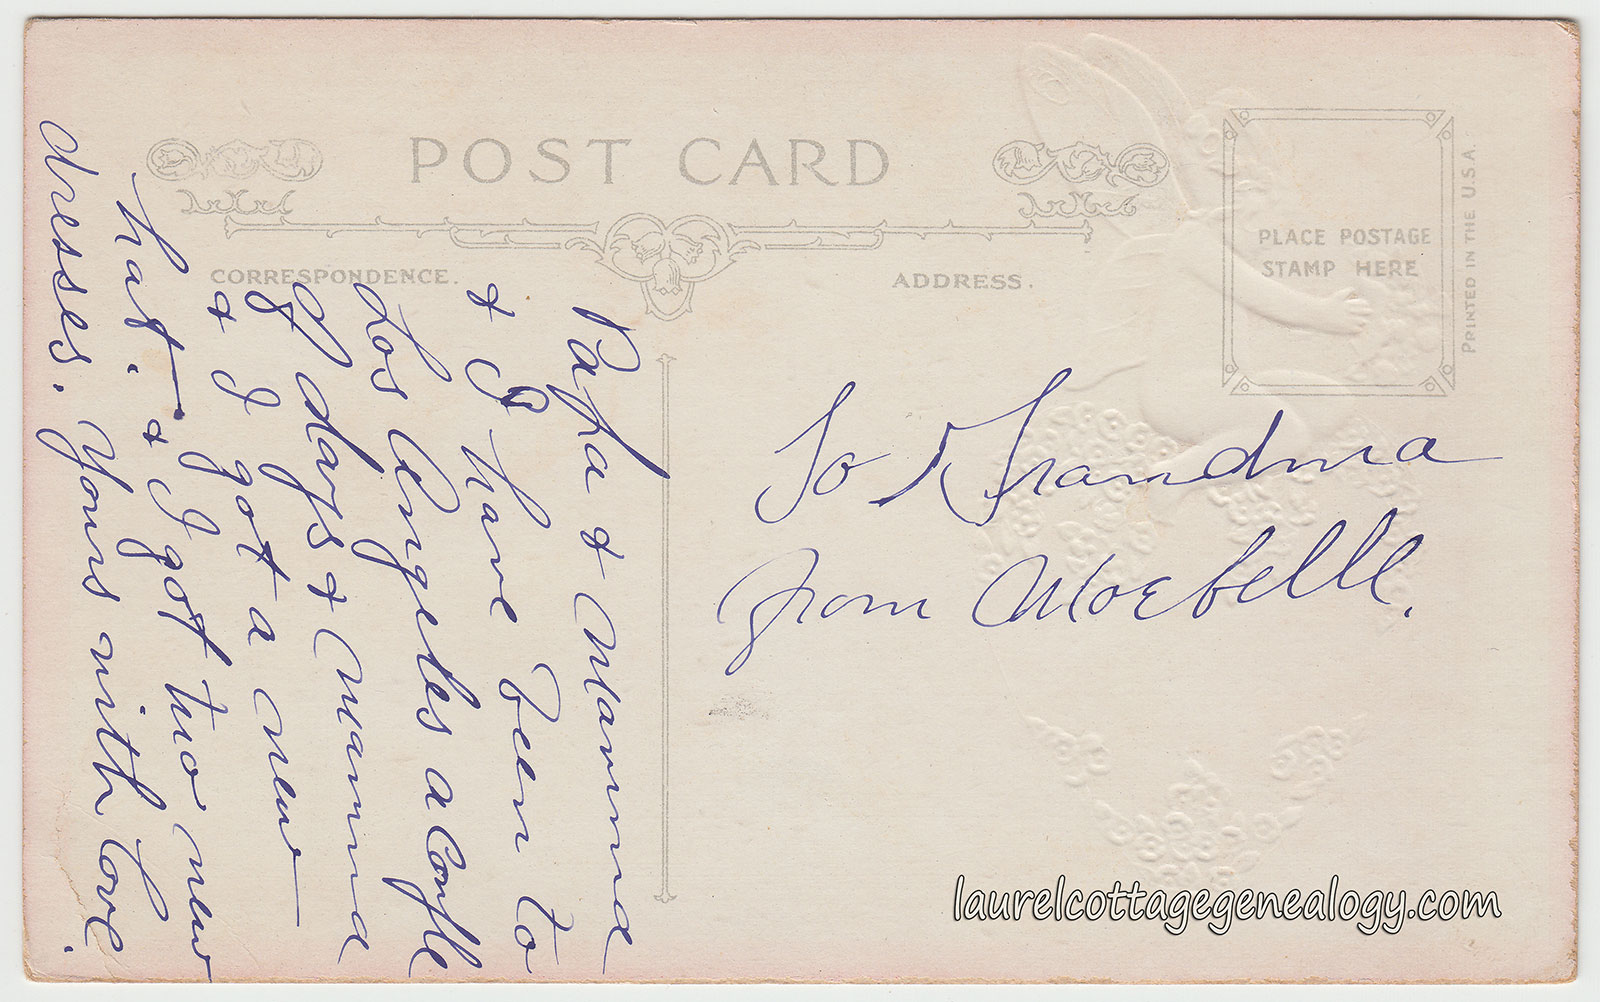 POST CARD
CORRESPONDENCE.
ADDRESS.
PLACE POSTAGE
STAMP HERE
PRINTED IN THE U.S.A.
Papa & Mamma
& I have been to
Los Angeles a Couple
of days & Mamma
& I got a new
hat. & I got two new
dresses. Yours with love.
To Grandma
from Moebelle.
laurelcottagegenealogy.com